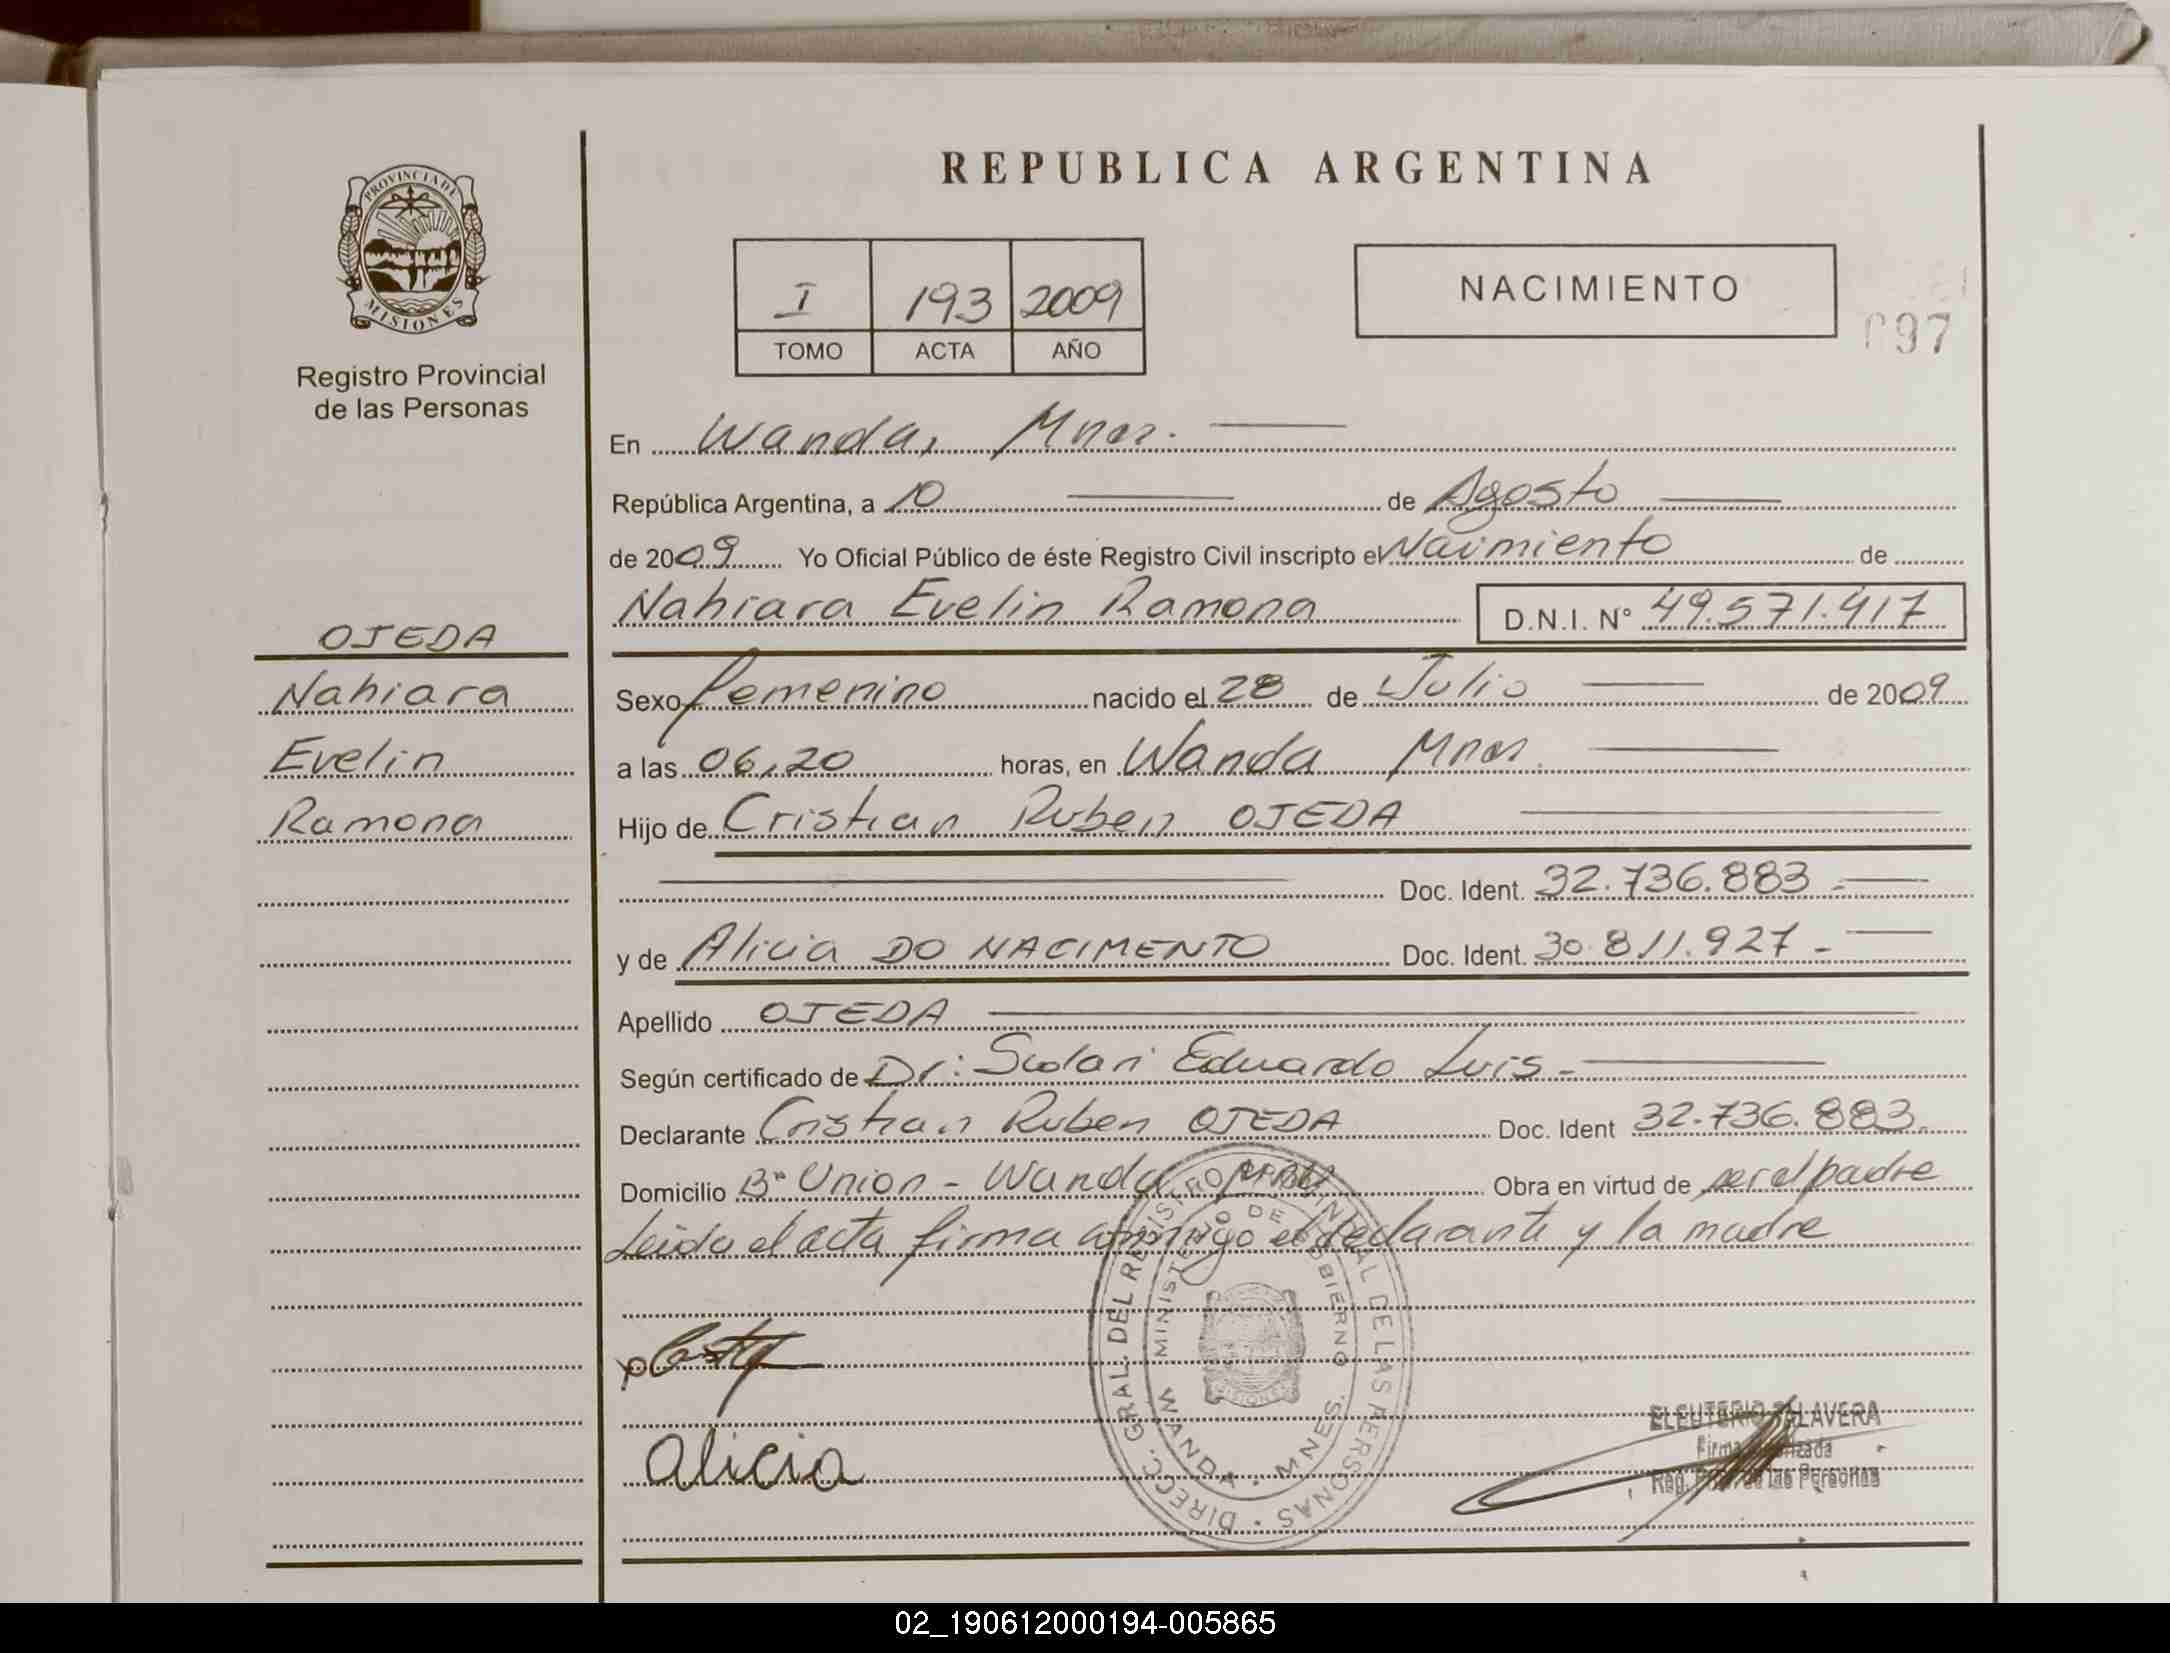 PROVINCIA DE
MISIONES
Registro Provincial
de las Personas
OJEDA
Nahiara
Evelin
Ramona
REPUBLICA ARGENTINA
I 193 2009
TOMO ACTA AÑO
NACIMIENTO
097
En Wanda, Mnes.
República Argentina, a 10 de Agosto
de 2009 Yo Oficial Público de éste Registro Civil inscripto el Nacimiento de
Nahiara Evelin Ramona D.N.I. N° 49.571.417
Sexo femenino nacido el 28 de Julio de 2009
a las 06,20 horas, en Wanda Mnes.
Hijo de Cristian Ruben OJEDA
Doc. Ident. 32.736.883.-
y de Alicia DO NACIMENTO Doc. Ident. 30.811.927-
Apellido OJEDA
Según certificado de Dr: Scolari Eduardo Luis.-
Declarante Cristian Ruben OJEDA Doc. Ident 32.736.883.
Domicilio B° Union - Wanda Mnes Obra en virtud de ser el padre
Leida el acta firma conmigo el declarante y la madre
DIRECC. GRAL. DEL REGISTRO PROVINCIAL DE LAS PERSONAS
MINISTERIO DE GOBIERNO
WANDA · MNES.
Alicia
ELEUTERIO TALAVERA
Firma Autorizada
Reg. Prov. de las Personas
02_190612000194-005865